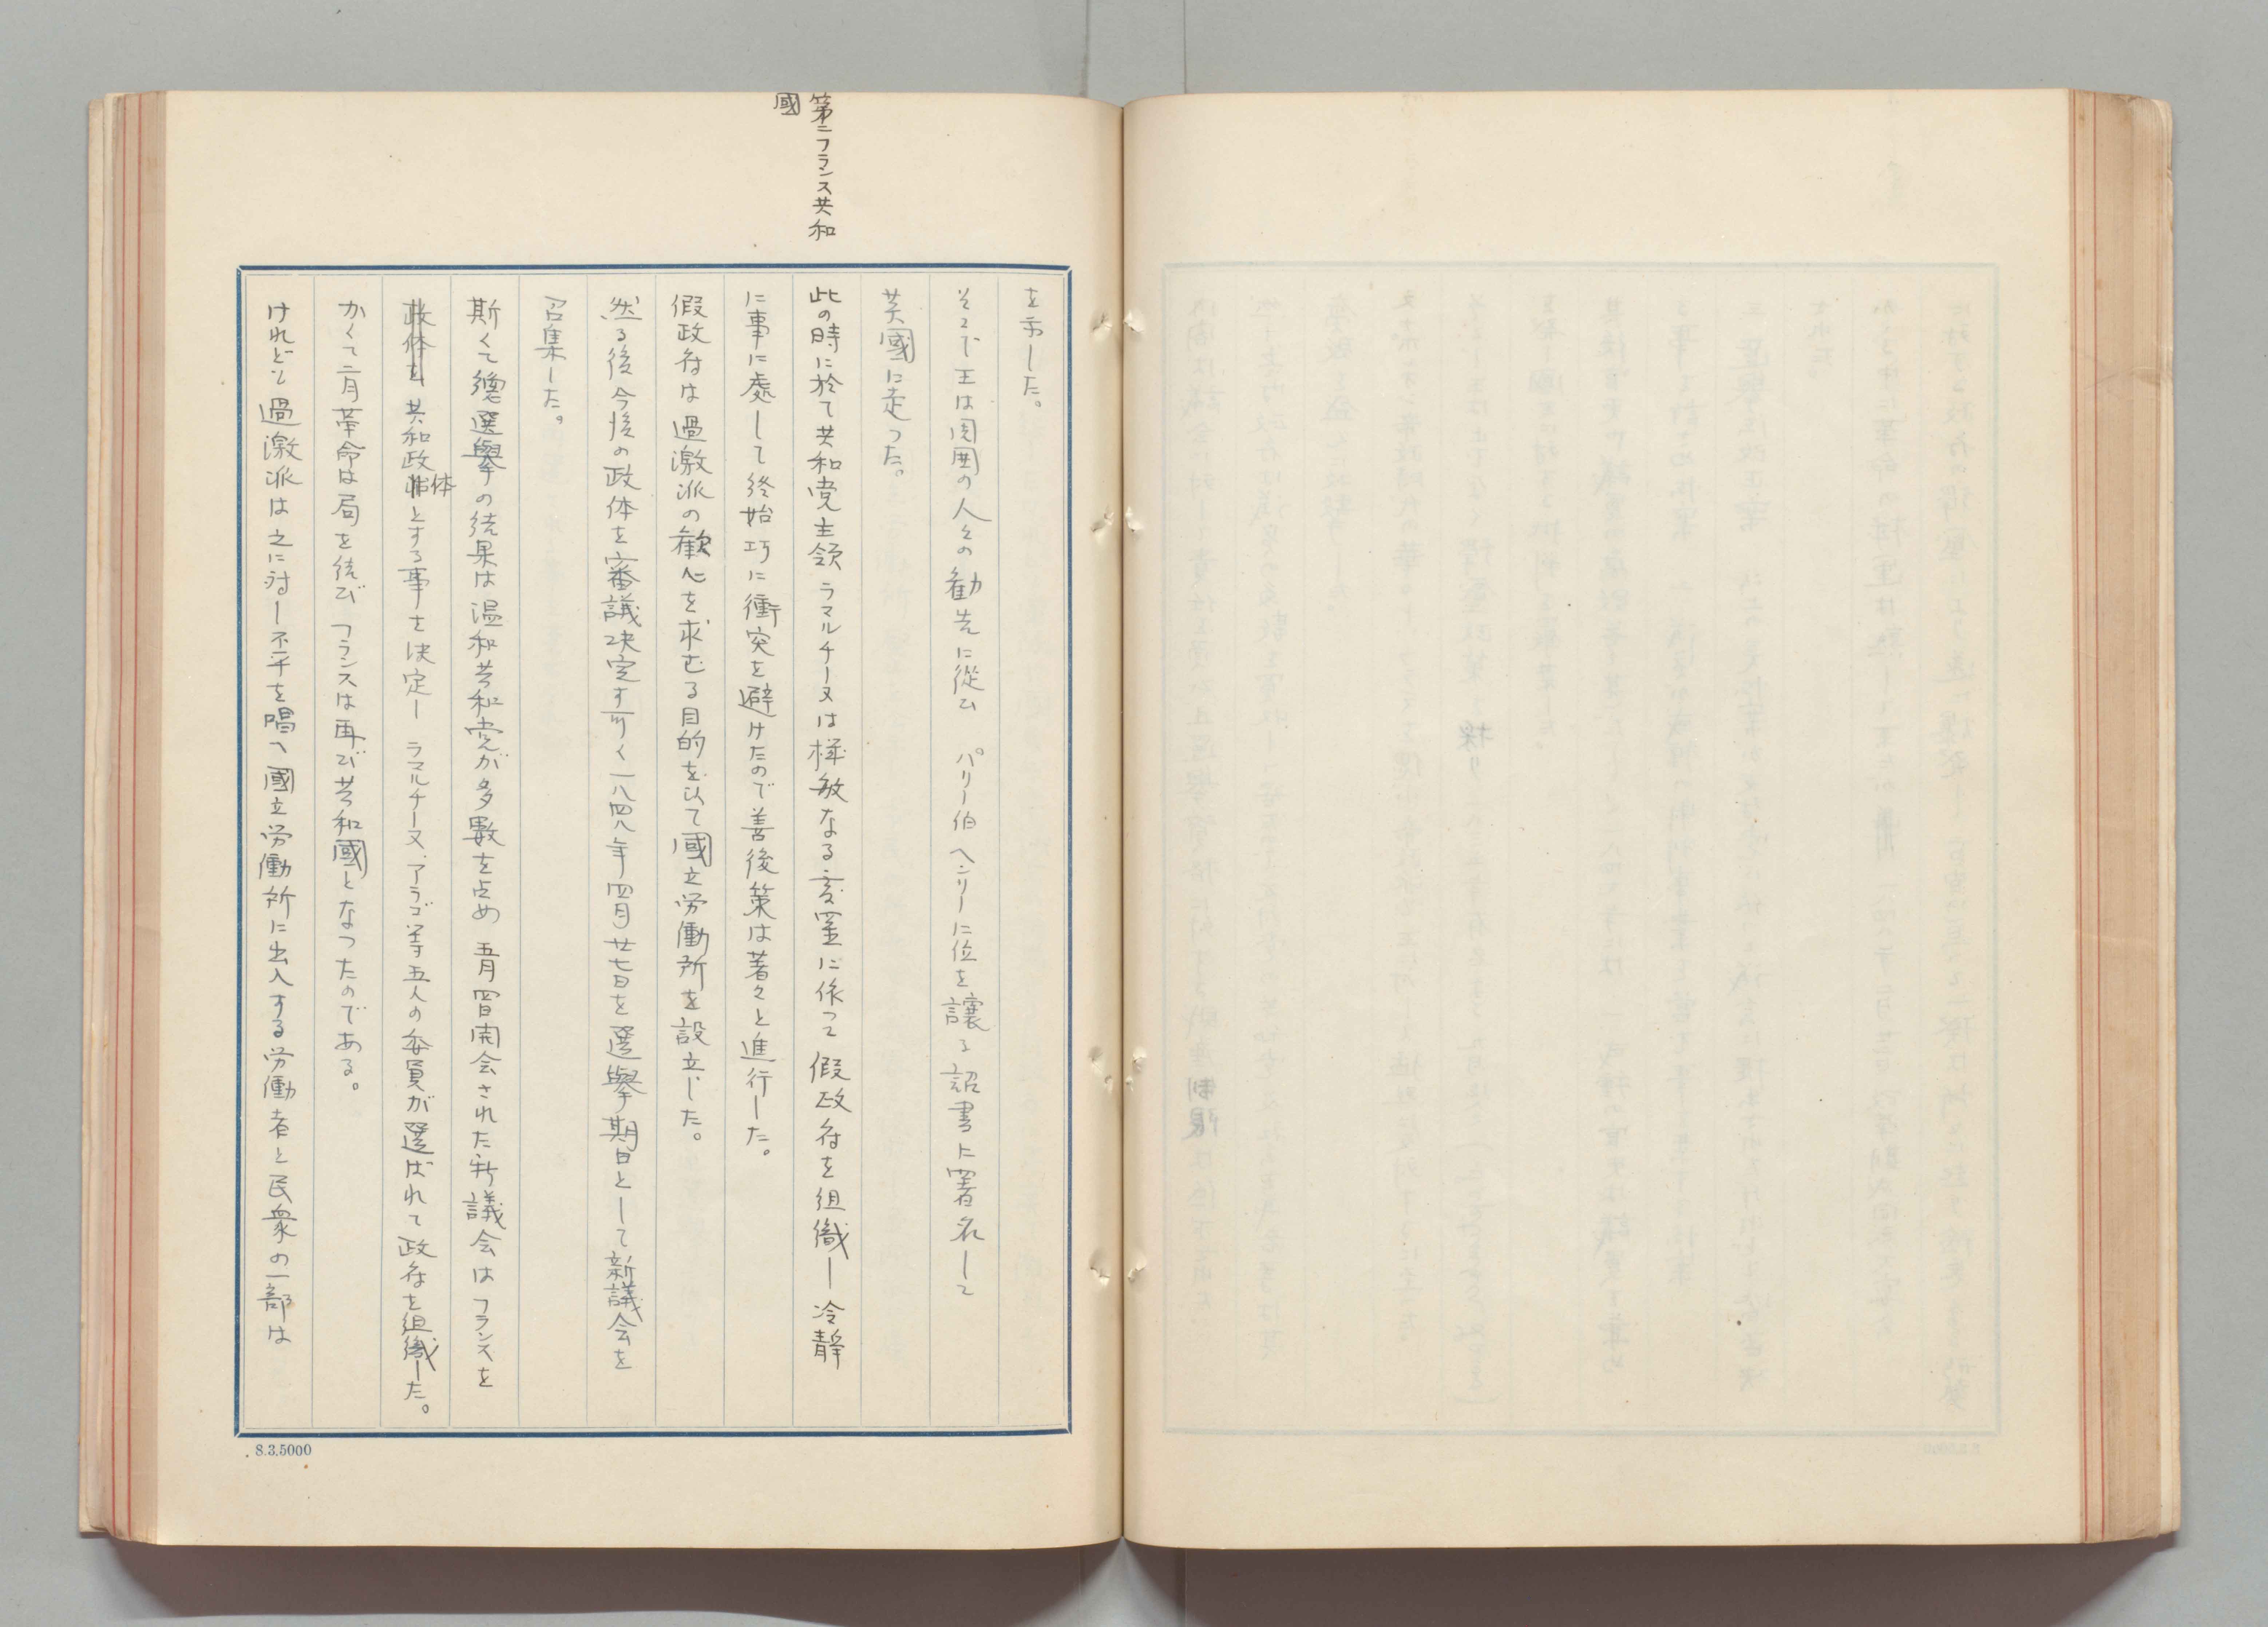 第二フランス共和
國
を示した。
そこで王は周囲の人々の勧告に從ひ パリー伯ヘンリーに位を譲る詔書に署名して
英國に走つた。
此の時に於て共和党主領ラマルチーヌは機敏なる変置に依つて 假政府を組織し 冷静
に事に處して 終始巧に衝突を避けたので善後策は著々と進行した。
假政府は過激派の歓心を求むる目的を以て國立労働所を設立した。
然る後今後の政体を審議決定す可く一八四八年四月廿七日を選擧期日として新議会を
召集した。
斯くて總選擧の結果は温和共和党が多數を占め 五月四日開会された新議会はフランスを
政体を共和政体とする事を決定し ラマルチーヌ、アラゴ等五人の委員が選ばれて政府を組織した。
かくて二月革命は局を結び フランスは再び共和國となつたのである。
けれども過激派は之に対し不平を唱へ國立労働所に出入する労働者と民衆の一部は
8.3.5000